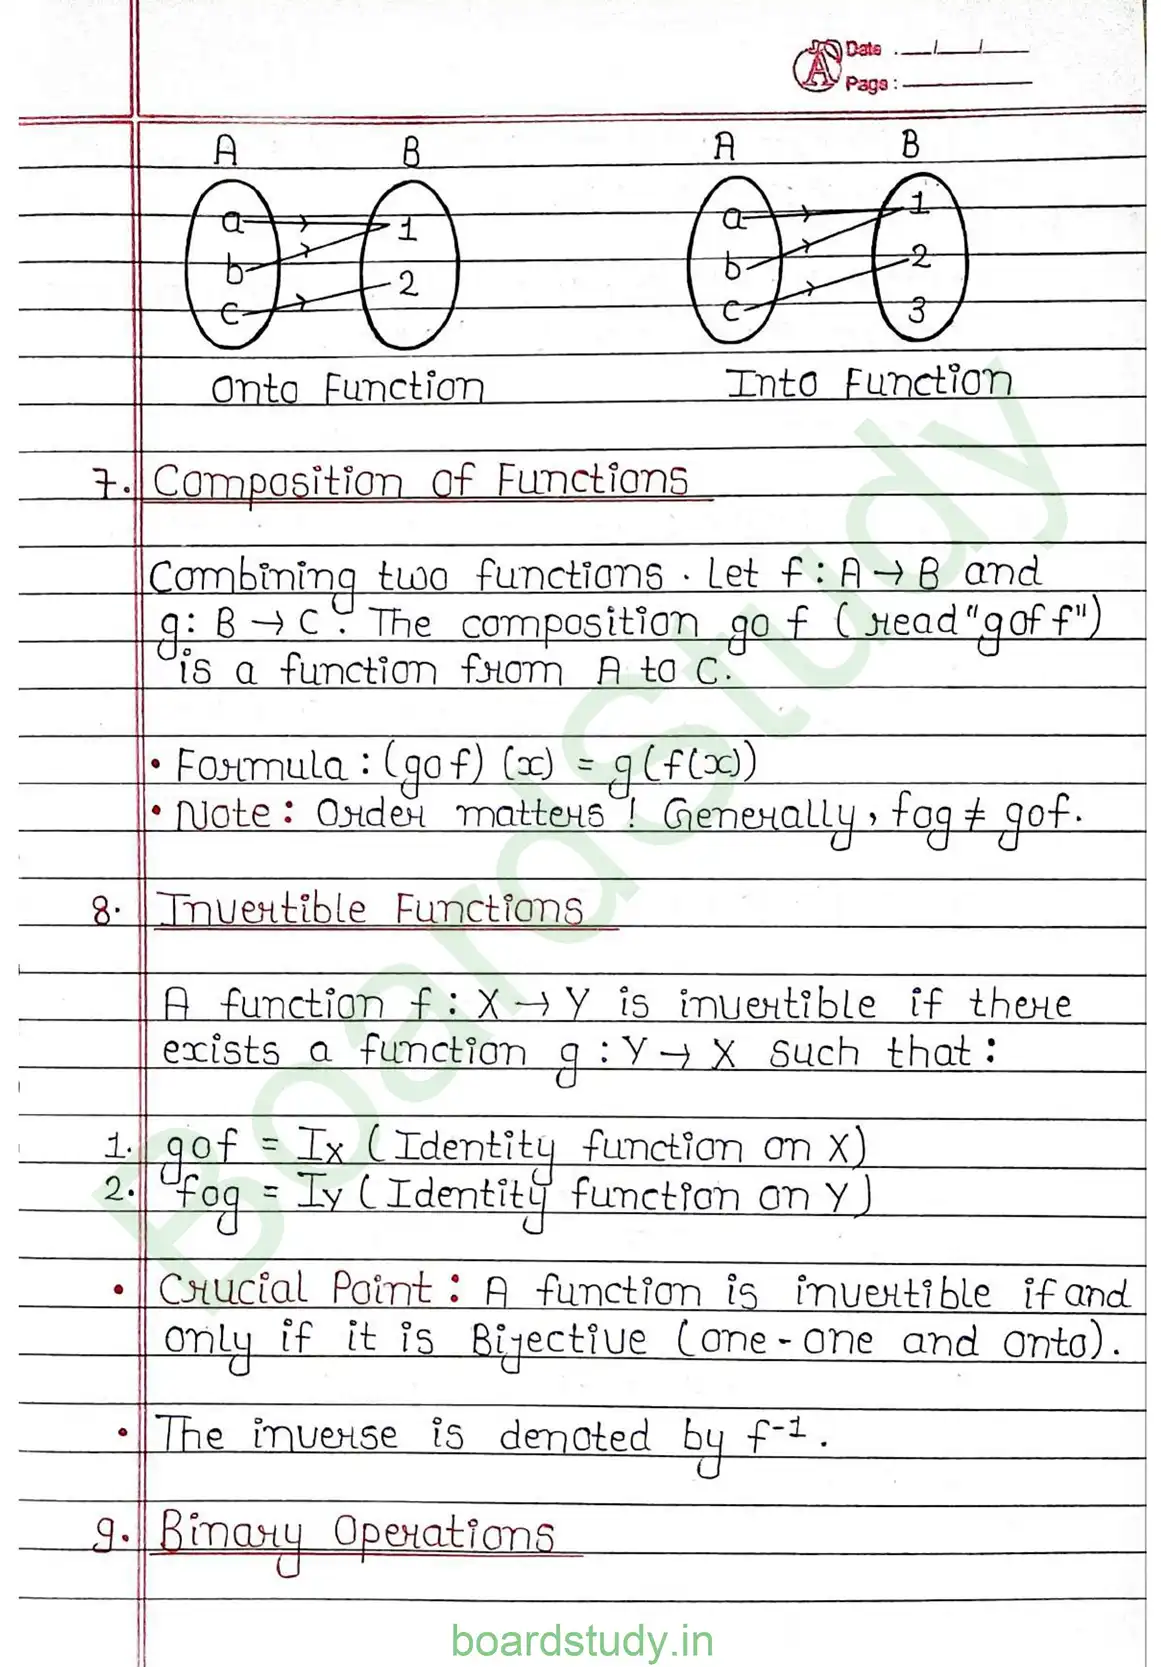 Date . __/__/__
Page :
A B A B
a 1 a 1
b 2 b 2
c c 3
Onto Function Into Function
7. Composition of Functions
Combining two functions. Let f : A → B and
g : B → C. The composition go f (read "gof f")
is a function from A to C.
• Formula : (gof) (x) = g(f(x))
• Note : Order matters ! Generally, fog ≠ gof.
8. Invertible Functions
A function f : X → Y is invertible if there
exists a function g : Y → X such that :
1. gof = Ix (Identity function on X)
2. fog = Iy (Identity function on Y)
• Crucial Point : A function is invertible if and
only if it is Bijective (one-one and onto).
• The inverse is denoted by f⁻¹.
9. Binary Operations
BoardStudy
boardstudy.in